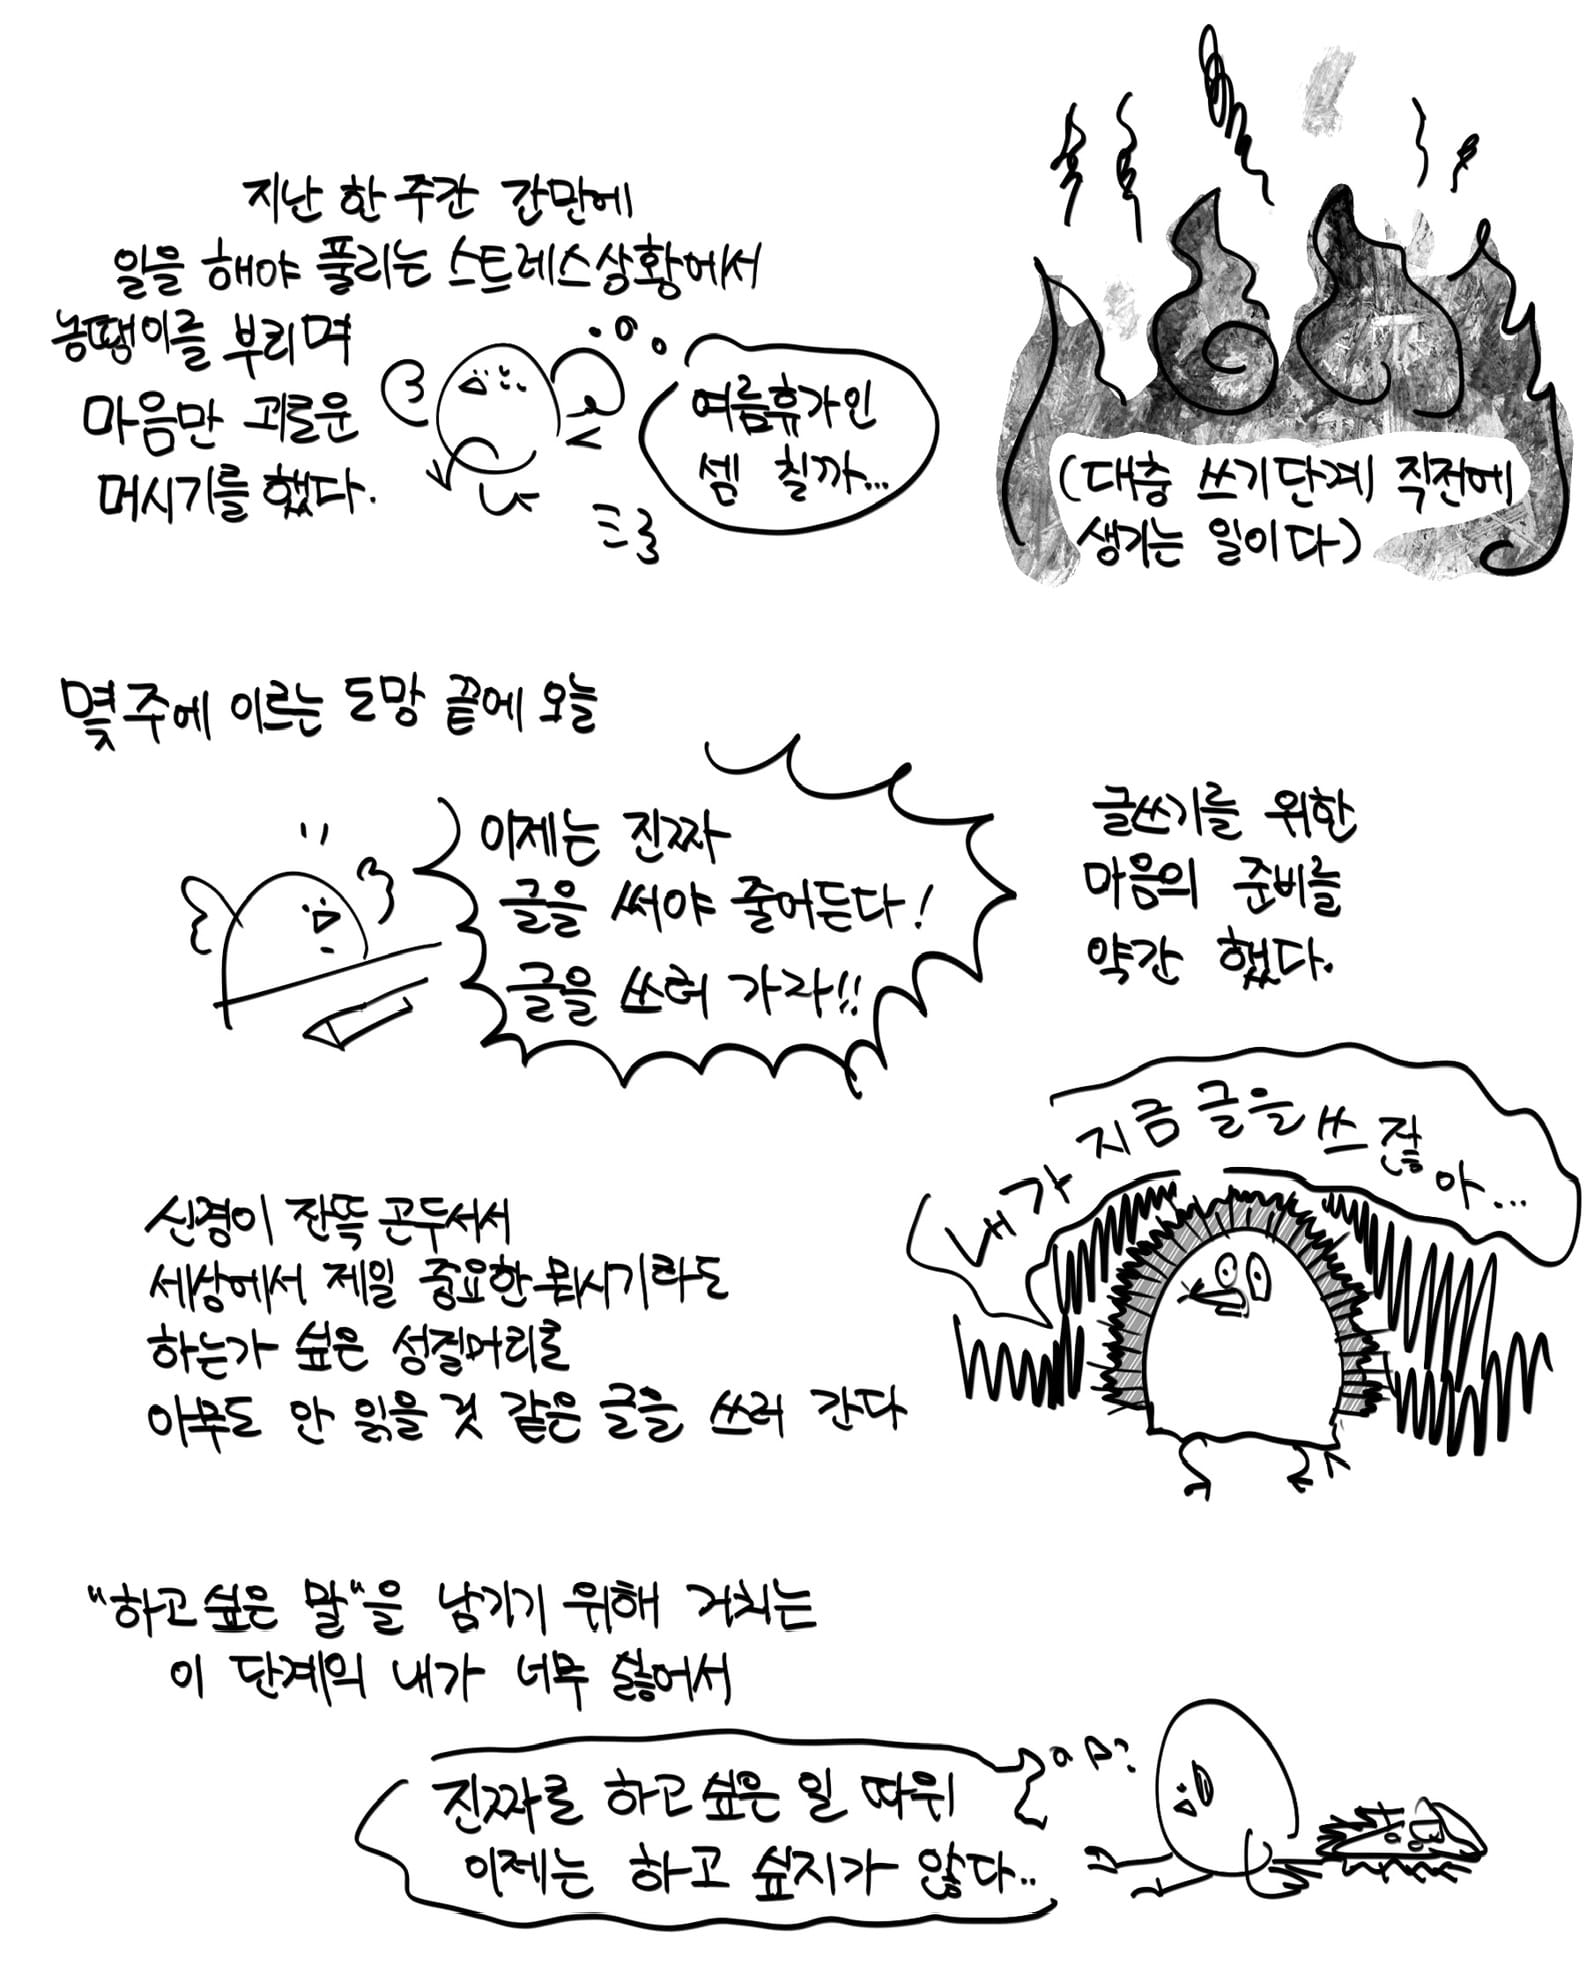 지난 한 주간 간만에
일을 해야 풀리는 스트레스상황에서
농땡이를 부리며
마음만 괴로운
머시기를 했다.
여름휴가인
셈 칠까...
(대충 쓰기단계 직전에
생기는 일이다)
몇 주에 이르는 도망 끝에 오늘
이제는 진짜
글을 써야 줄어든다!
글을 쓰러 가라!!
글쓰기를 위한
마음의 준비를
약간 했다.
내가 지금 글을 쓰잖아...
신경이 잔뜩 곤두서서
세상에서 제일 중요한 뭐시기라도
하는가 싶은 성질머리로
아무도 안 읽을 것 같은 글을 쓰러 간다
"하고 싶은 말"을 남기기 위해 거치는
이 단계의 내가 너무 싫어서
진짜로 하고 싶은 일 따위
이제는 하고 싶지가 않다..